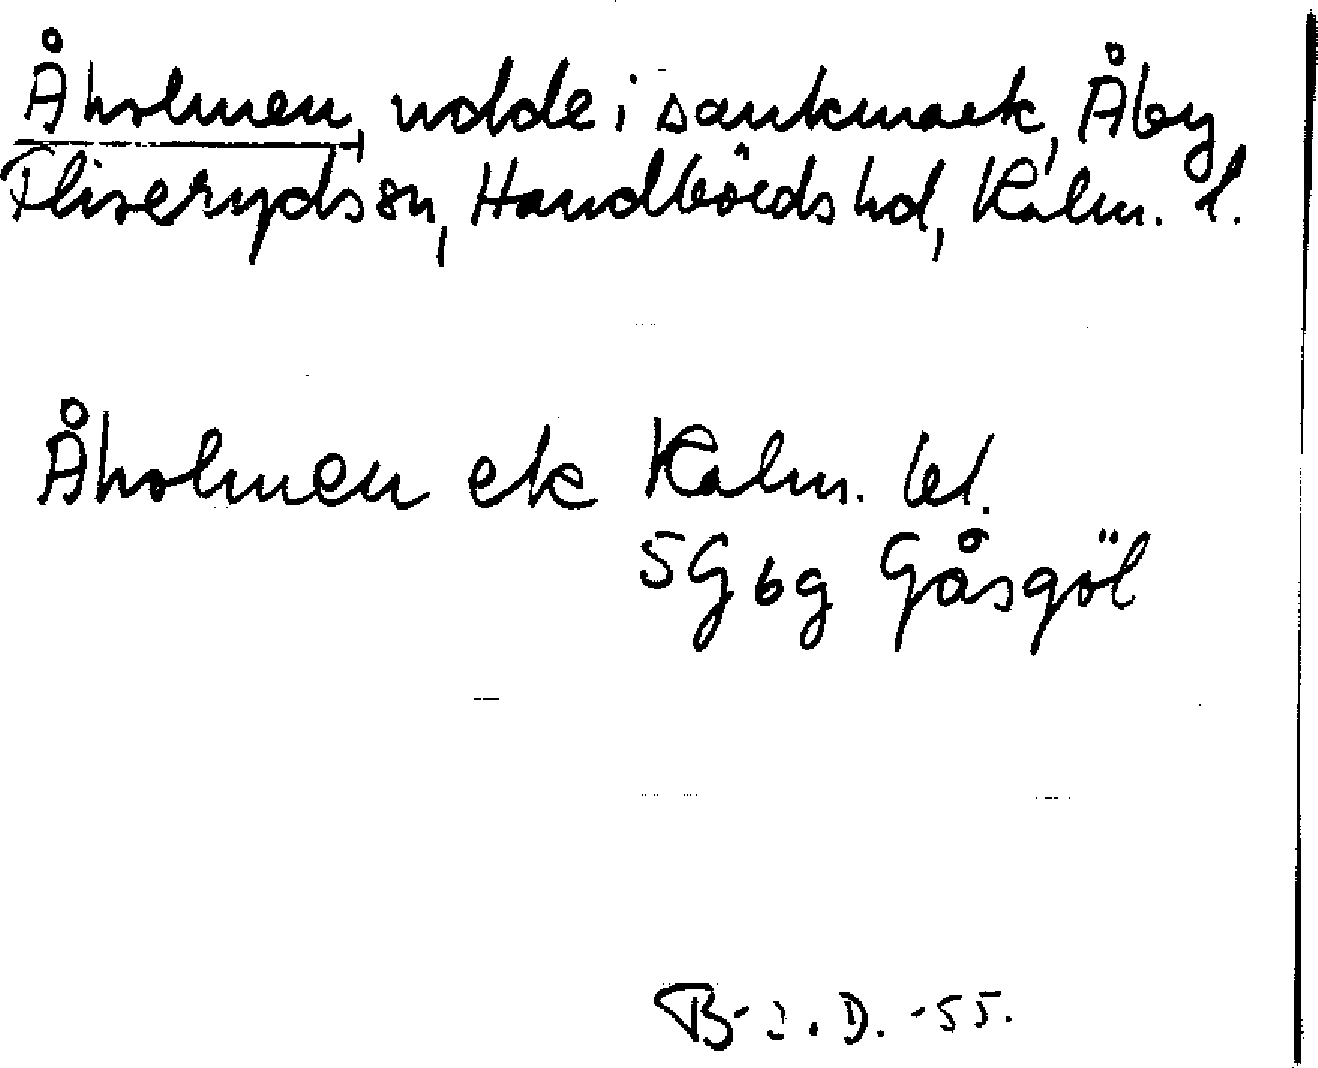 Åholmen, udde i sankmark, Åby
Fliseryds sn, Handbörds hd, Kalm. l.
Åholmen ek Kalm. bl.
5G6g Gåsgöl
B-J. D. -55.